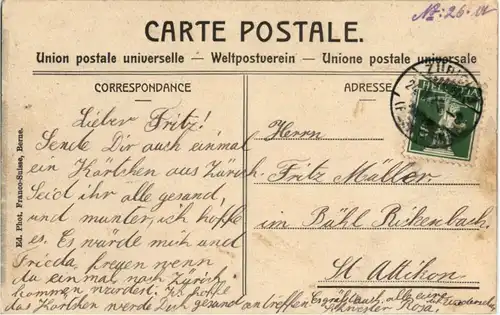 No: 26. a
CARTE POSTALE.
Union postale universelle — Weltpostverein — Unione postale universale
CORRESPONDANCE
ADRESSE
Ed. Phot. Franco-Suisse, Berne.
ZÜRICH
Lieber Fritz!
Sende Dir auch einmal
ein Kärtchen aus Zürich.
Seid ihr alle gesund,
und munter, ich hoffe
es. Es würde mich und
Frieda, freuen wenn
du einmal nach Zürich
kommen würdest. Ich hoffe
das Kärtchen werde Dich gesund antreffen. Es grüßt euch alle eure
Schwester Rosa.
Herrn
Fritz Müller
im Bühl Rickenbach
St Attikon